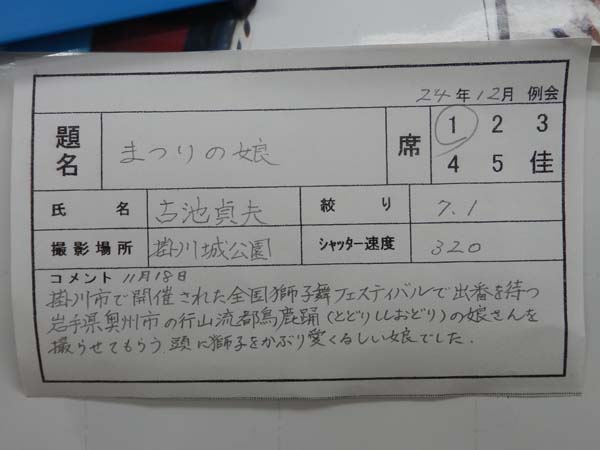 24年12月 例会
題名 まつりの娘 席 1 2 3
4 5 佳
氏名 古池貞夫 絞り 7.1
撮影場所 掛川城公園 シャッター速度 320
コメント 11月18日
掛川市で開催された全国獅子舞フェスティバルで出番を待つ
岩手県奥州市の行山流都鳥鹿踊(とどりししおどり)の娘さんを
撮らせてもらう 頭に獅子をかぶり愛くるしい娘でした.